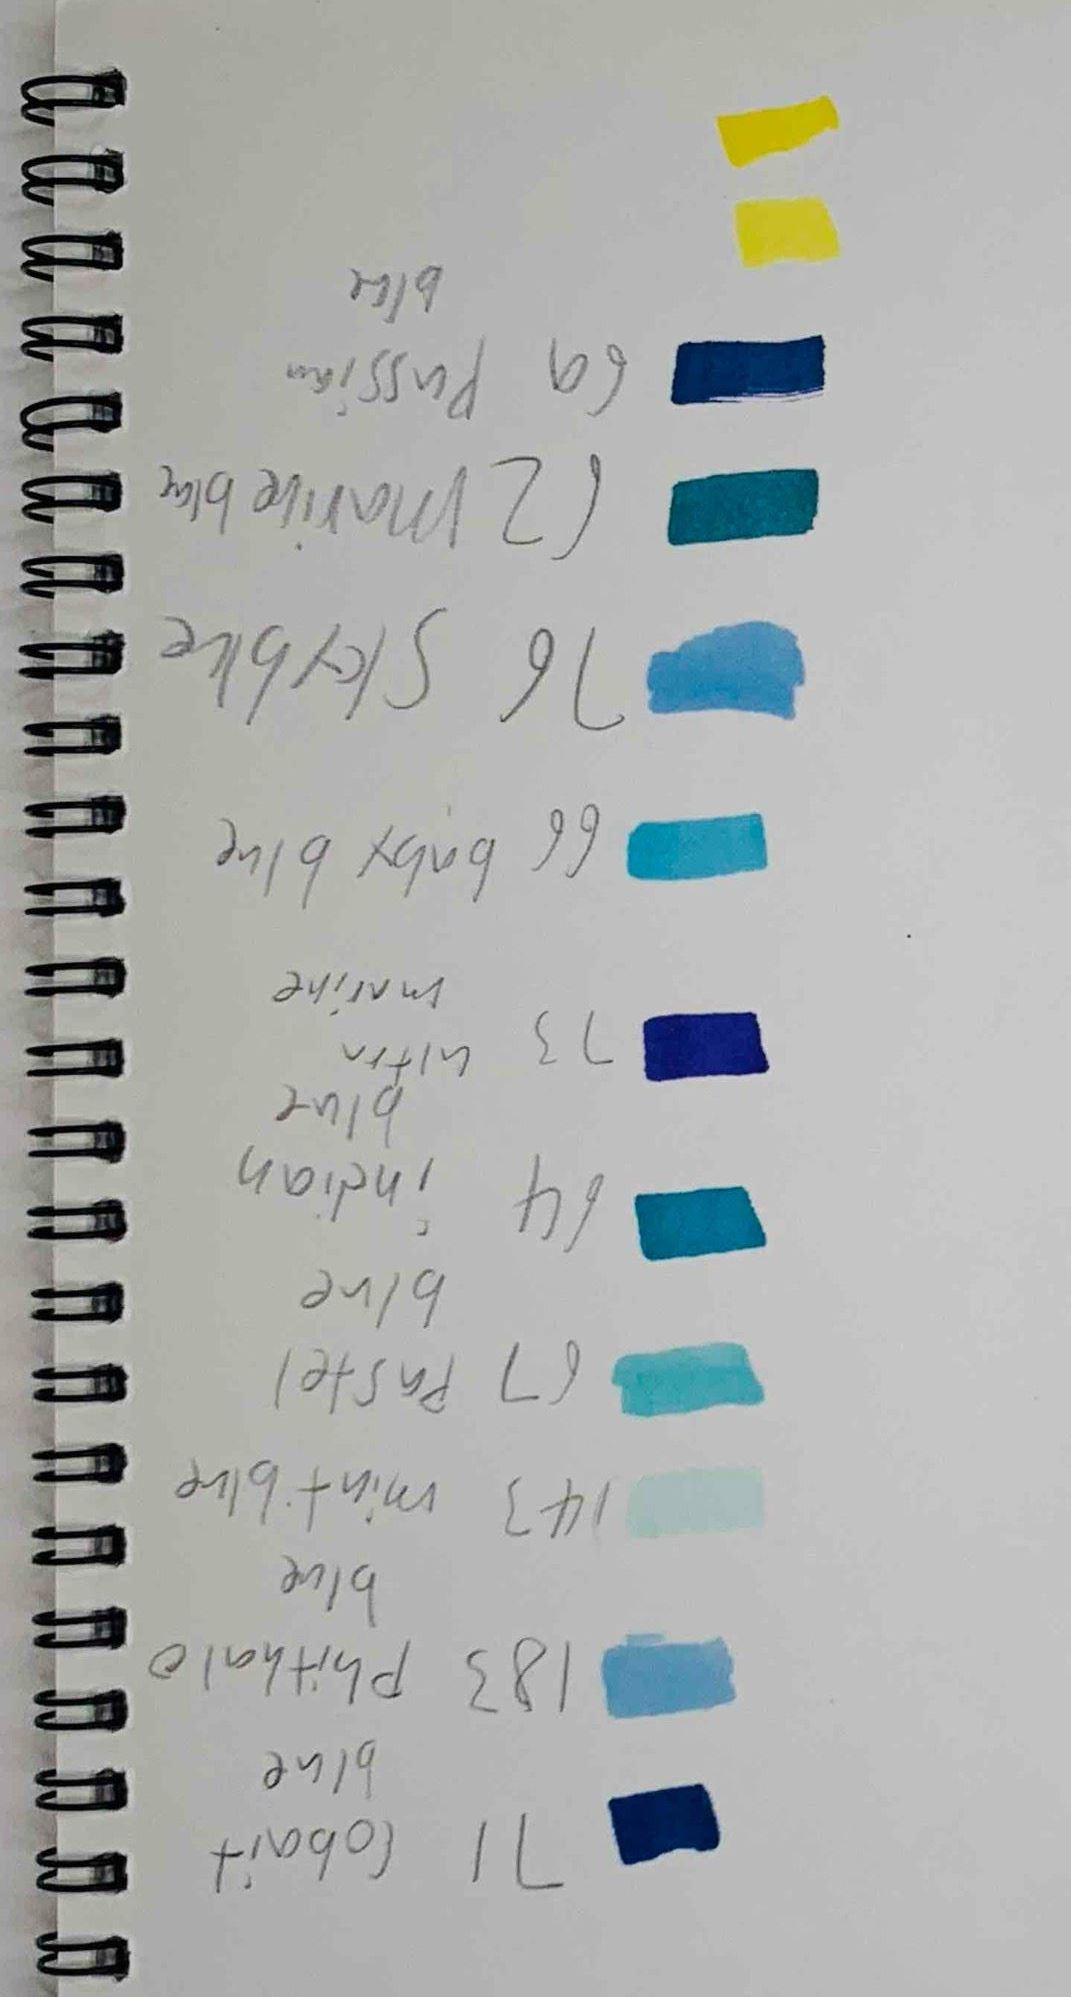 71 Cobait
blue
183 Phithalo
blue
143 mint blue
67 Pastel
blue
64 indian
blue
73 ultra
marine
66 baby blue
76 Sky blue
62 Marine blue
69 Pussian
blue